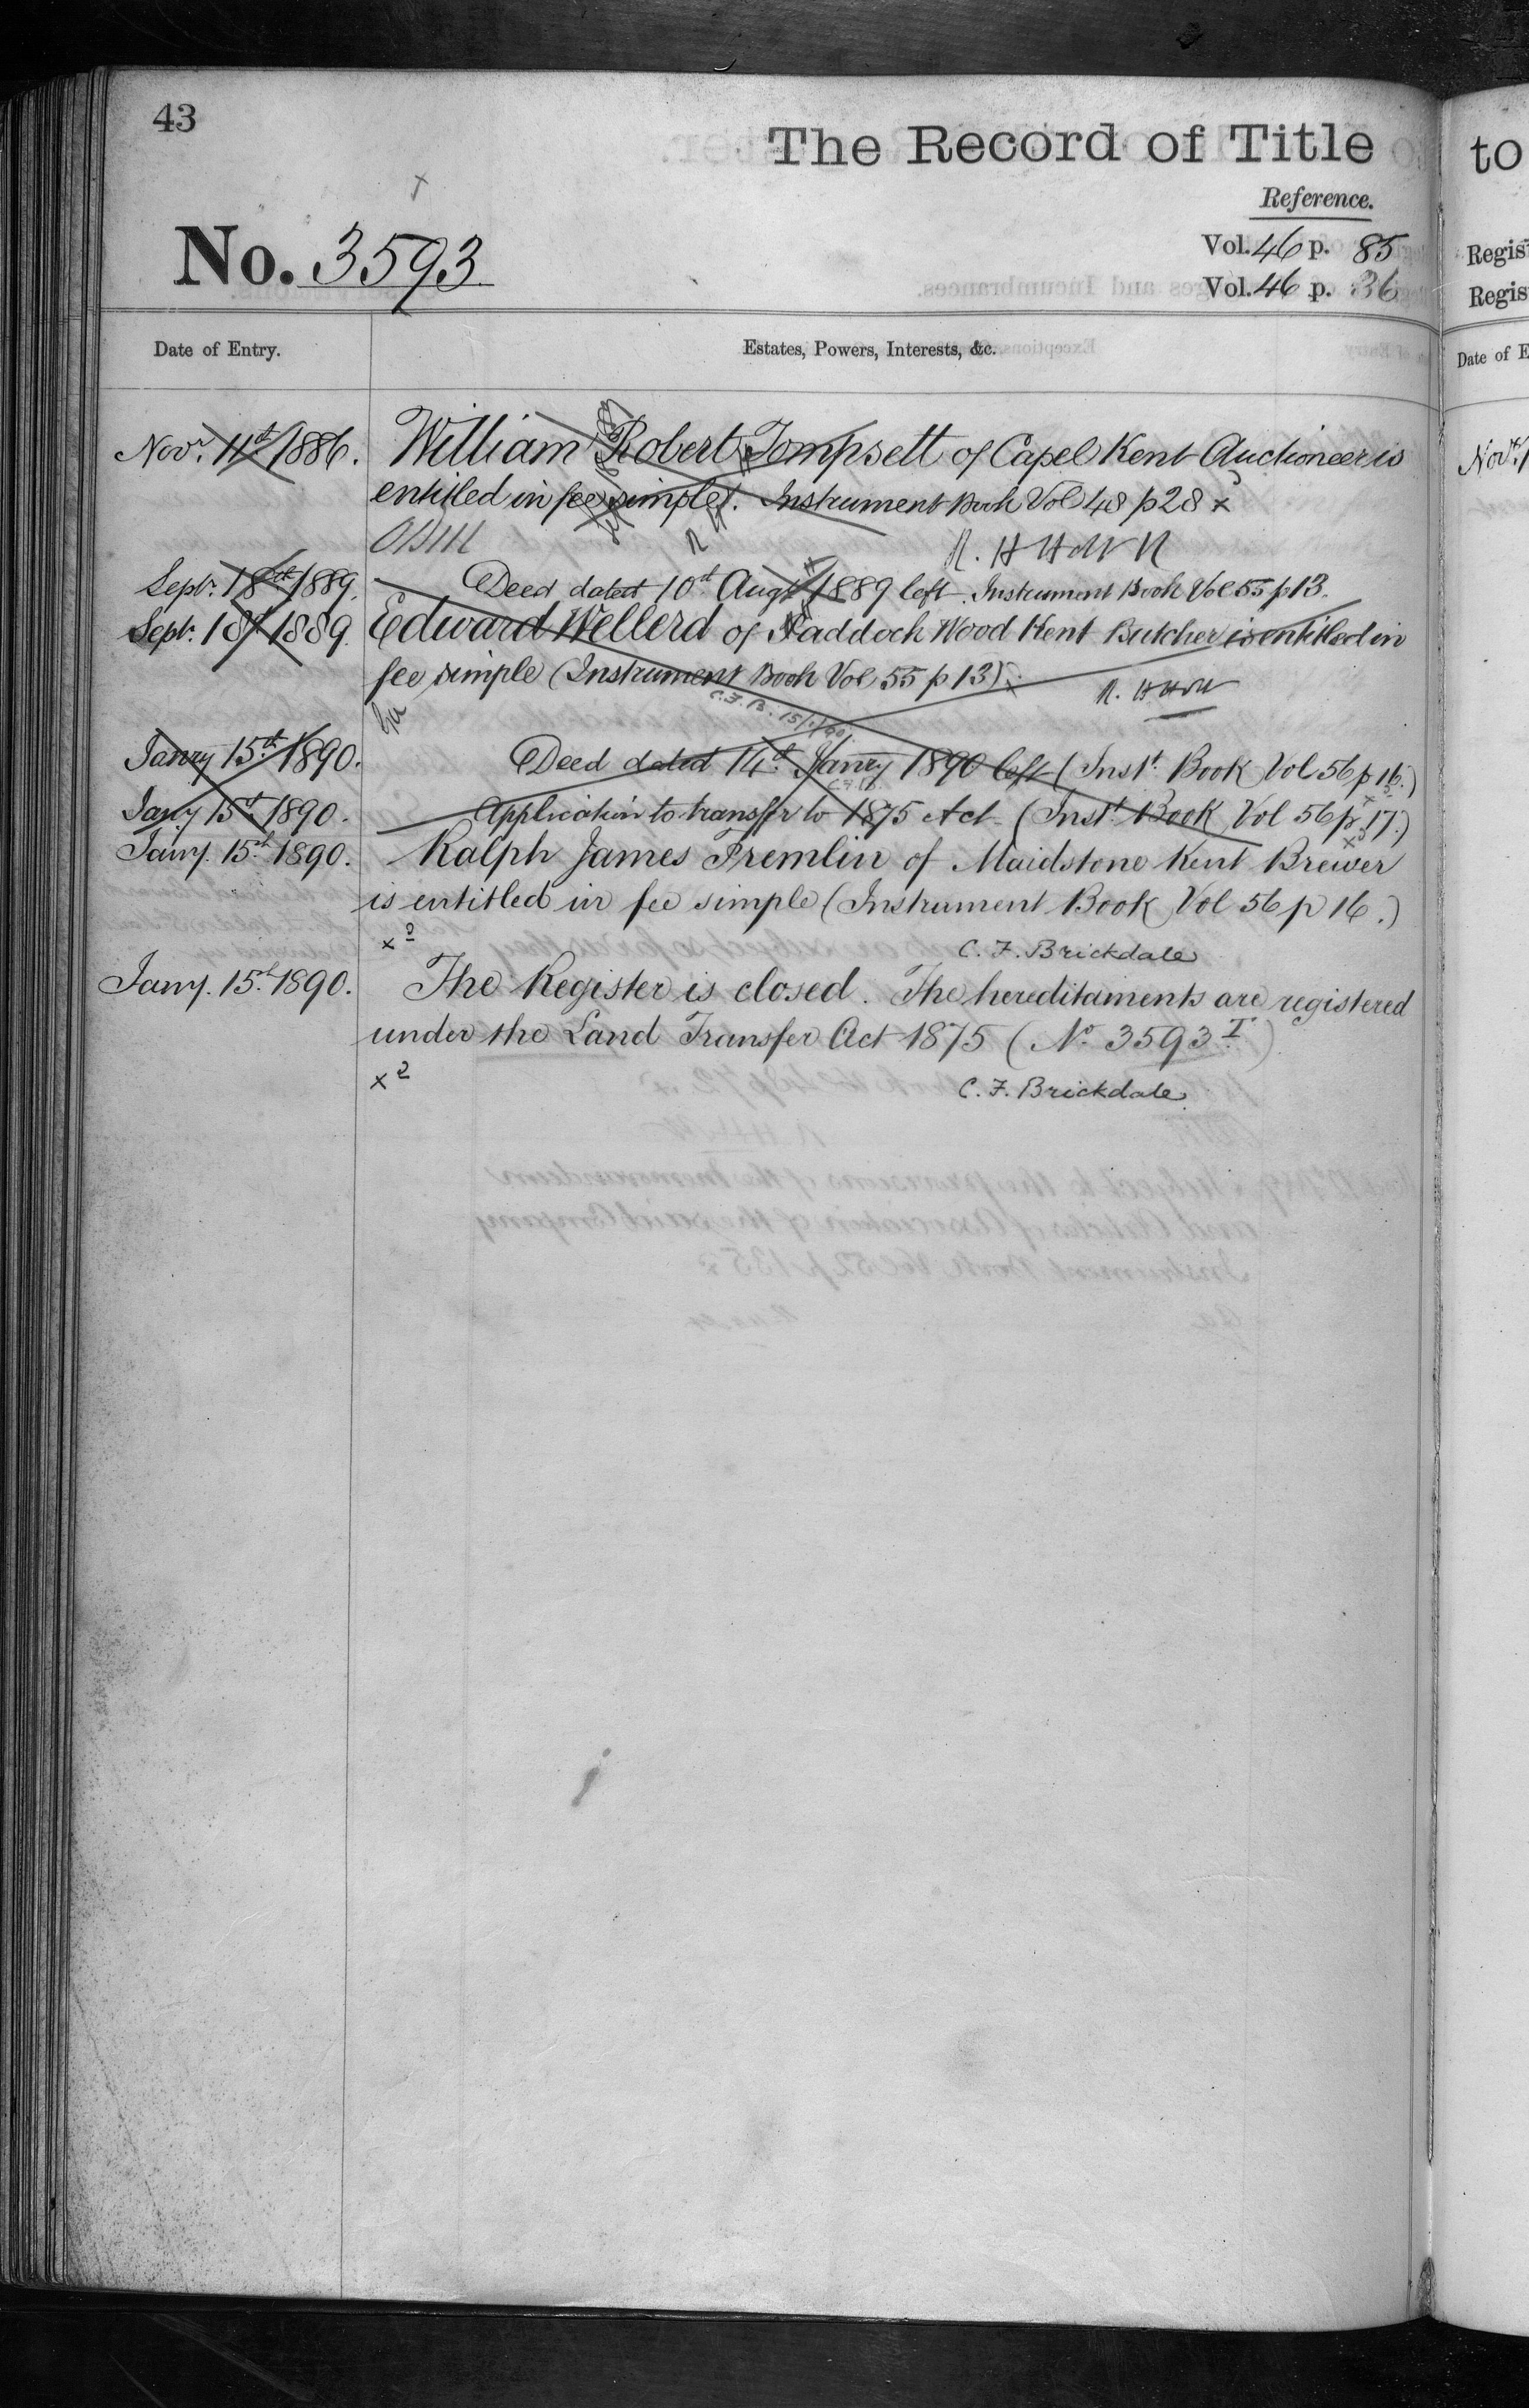 43
The Record of Title
to
Reference.
No. 3593
Vol. 46 p. 85
Vol. 46 p. 36
Regis
Regis
Date of Entry.
Estates, Powers, Interests, &c.
Date of E
Novr. 11th 1886. William Robert Tompsett of Capel Kent Auctioneer is
entitled in fee simple. Instrument Book Vol 48 p 28 x
Septr. 18th 1889. Deed dated 10th Augt 1889 left. Instrument Book Vol 55 p 13.
Septr. 18th 1889. Edward Wellerd of Paddock Wood Kent Butcher is entitled in
fee simple (Instrument Book Vol 55 p 13) x
C. F. B. 15/1/90
Janry 15th 1890. Deed dated 14th Janry 1890 left (Inst. Book Vol 56 p 16.)
Jany 15th 1890. Application to transfer to 1875 Act (Inst. Book Vol 56 p 17.)
Jany. 15th 1890. Ralph James Fremlin of Maidstone Kent Brewer
is entitled in fee simple (Instrument Book Vol 56 p 16.)
x2 C. F. Brickdale
Jany. 15th 1890. The Register is closed. The hereditaments are registered
under the Land Transfer Act 1875 (No 3593 I)
x2 C. F. Brickdale